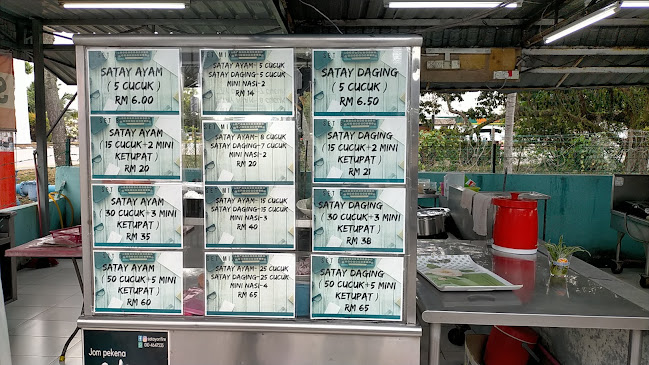 SATAY AYAM
( 5 CUCUK )
RM 6.00
SET
SATAY AYAM
(15 CUCUK+2 MINI
KETUPAT)
RM 20
SATAY AYAM
(30 CUCUK+3 MINI
KETUPAT)
RM 35
SATAY AYAM
(50 CUCUK+5 MINI
KETUPAT)
RM 60
SATAY AYAM- 5 CUCUK
SATAY DAGING-5 CUCUK
MINI NASI-2
RM 14
SATAY AYAM- 8 CUCUK
SATAY DAGING-7 CUCUK
MINI NASI-2
RM 20
SATAY AYAM- 15 CUCUK
SATAY DAGING-15 CUCUK
MINI NASI-3
RM 40
SATAY AYAM- 25 CUCUK
SATAY DAGING- 25 CUCUK
MINI NASI-4
RM 65
SATAY DAGING
(5 CUCUK)
RM 6.50
SET
SATAY DAGING
(15 CUCUK+2 MINI
KETUPAT)
RM 21
SATAY DAGING
(30 CUCUK+3 MINI
KETUPAT)
RM 38
SATAY DAGING
(50 CUCUK+5 MINI
KETUPAT)
RM 65
Jom pekena